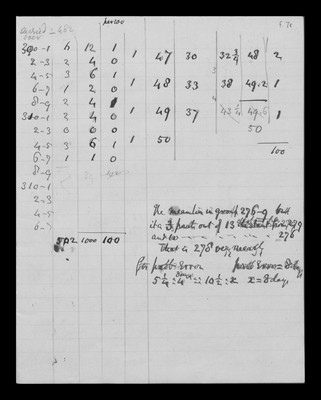 per 100
f. 71
carried over
390-1 6 12 1 1 47 30 32 3/4 48 2
2-3 2 4 0
4-5 3 6 1 1 48 33 38 49.2 1
6-7 1 2 0
8-9 2 4
310-1 2 4 0 1 49 37 43 1/4 49.6 1
2-3 0 0 0 50
4-5 3 6 1 1 50
6-7 1 1 0 100
8-9
310-1
2-3
4-5
6-7
502 1000 100
The median is in group 276-9 but
it is parts out of 13 from 279
and to 276
That is 278 very nearly
For prob: Error prob: Error = 8 days
5 1/4 : 4 days :: 10 1/2 : x x = 8 days